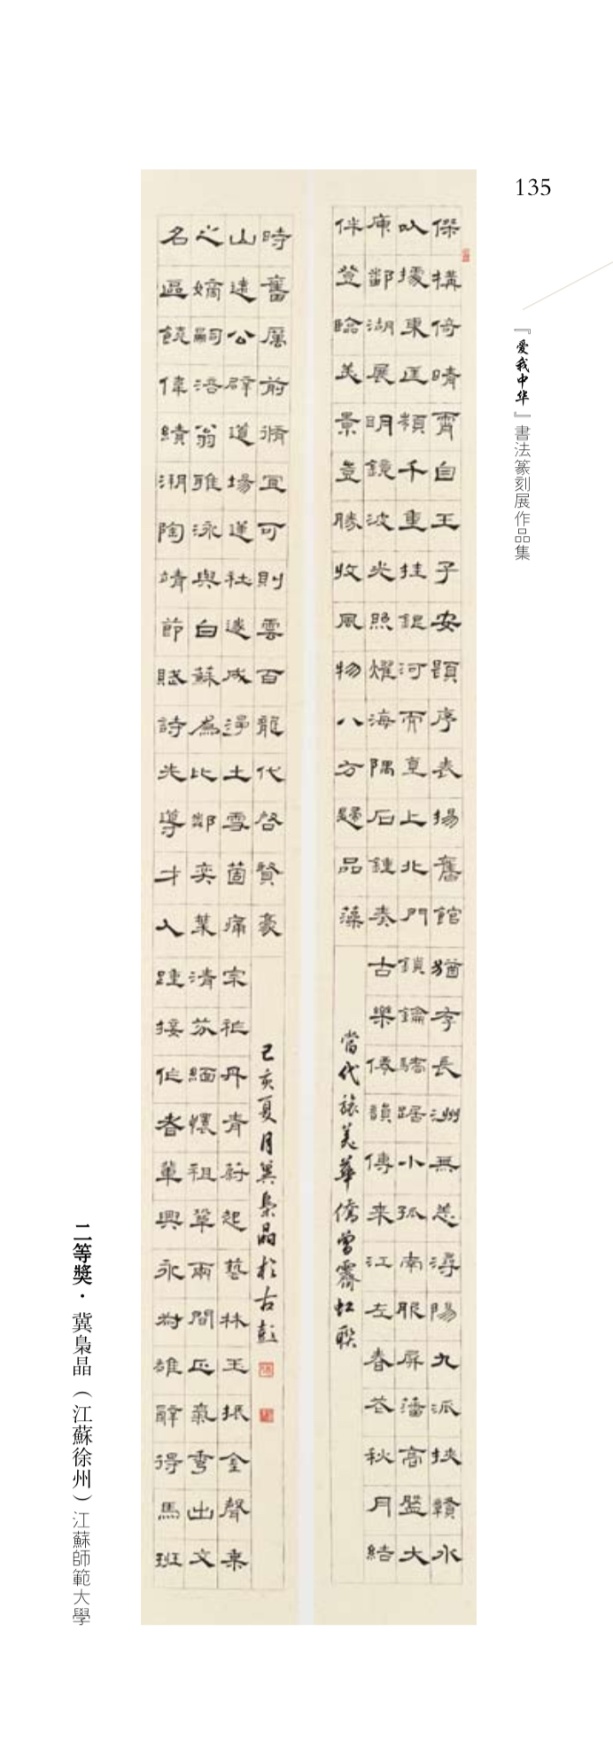 135
『愛我中华』書法篆刻展作品集
傑構倚晴霄自王子安題序表揚舊館猶存長洲無恙潯陽九派挾贛水
以據東匡千重挂銀河而直上北門鎖鑰驕踞小孤南服屏藩高盤大
庾鄱湖展明鏡波光照燿海隅石鍾奏古樂僊韻傳來江左春花秋月結
伴登臨美景並勝收風物八方歸品藻
當代旅美華僑曾霽虹聯
名區饒偉績溯陶靖節賦詩先導才人踵接作者輩興永叔雄辭得馬班
之嫡嗣涪翁雅泳與白蘇為比鄰奕葉清芬緬懷祖兩間正氣疊出文
山遠公辟道場蓮社遂成淨土雪箇痛宗社丹青蔚起藝林玉振金聲秉
時奮厲前脩宜可則雲百龍代啓賢豪
己亥夏月冀梟晶於古彭
二等獎·冀梟晶（江蘇徐州）江蘇師範大學